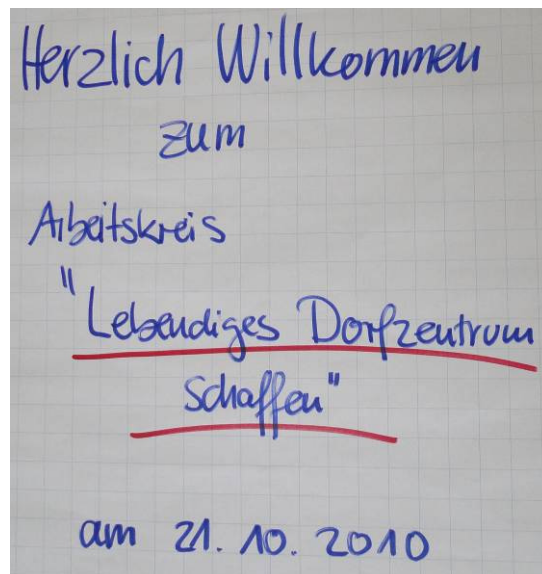 Herzlich Willkommen
zum
Arbeitskreis
"Lebendiges Dorfzentrum
schaffen"
am 21.10.2010